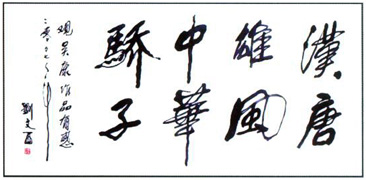 漢唐
雄風
中華
驕子
觀吴康作品有感
二〇〇七
劉文西